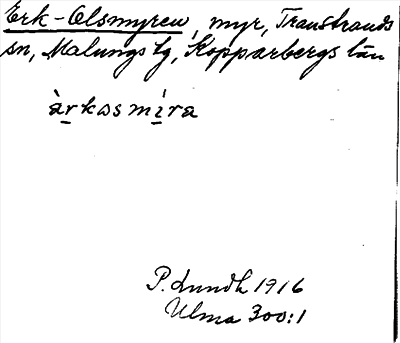 Erk-Olsmyren, myr, Transtrands
sn, Malungs tg, Kopparbergs län
àrkɷsmíra
P. Lundh 1916
Ulma 300:1